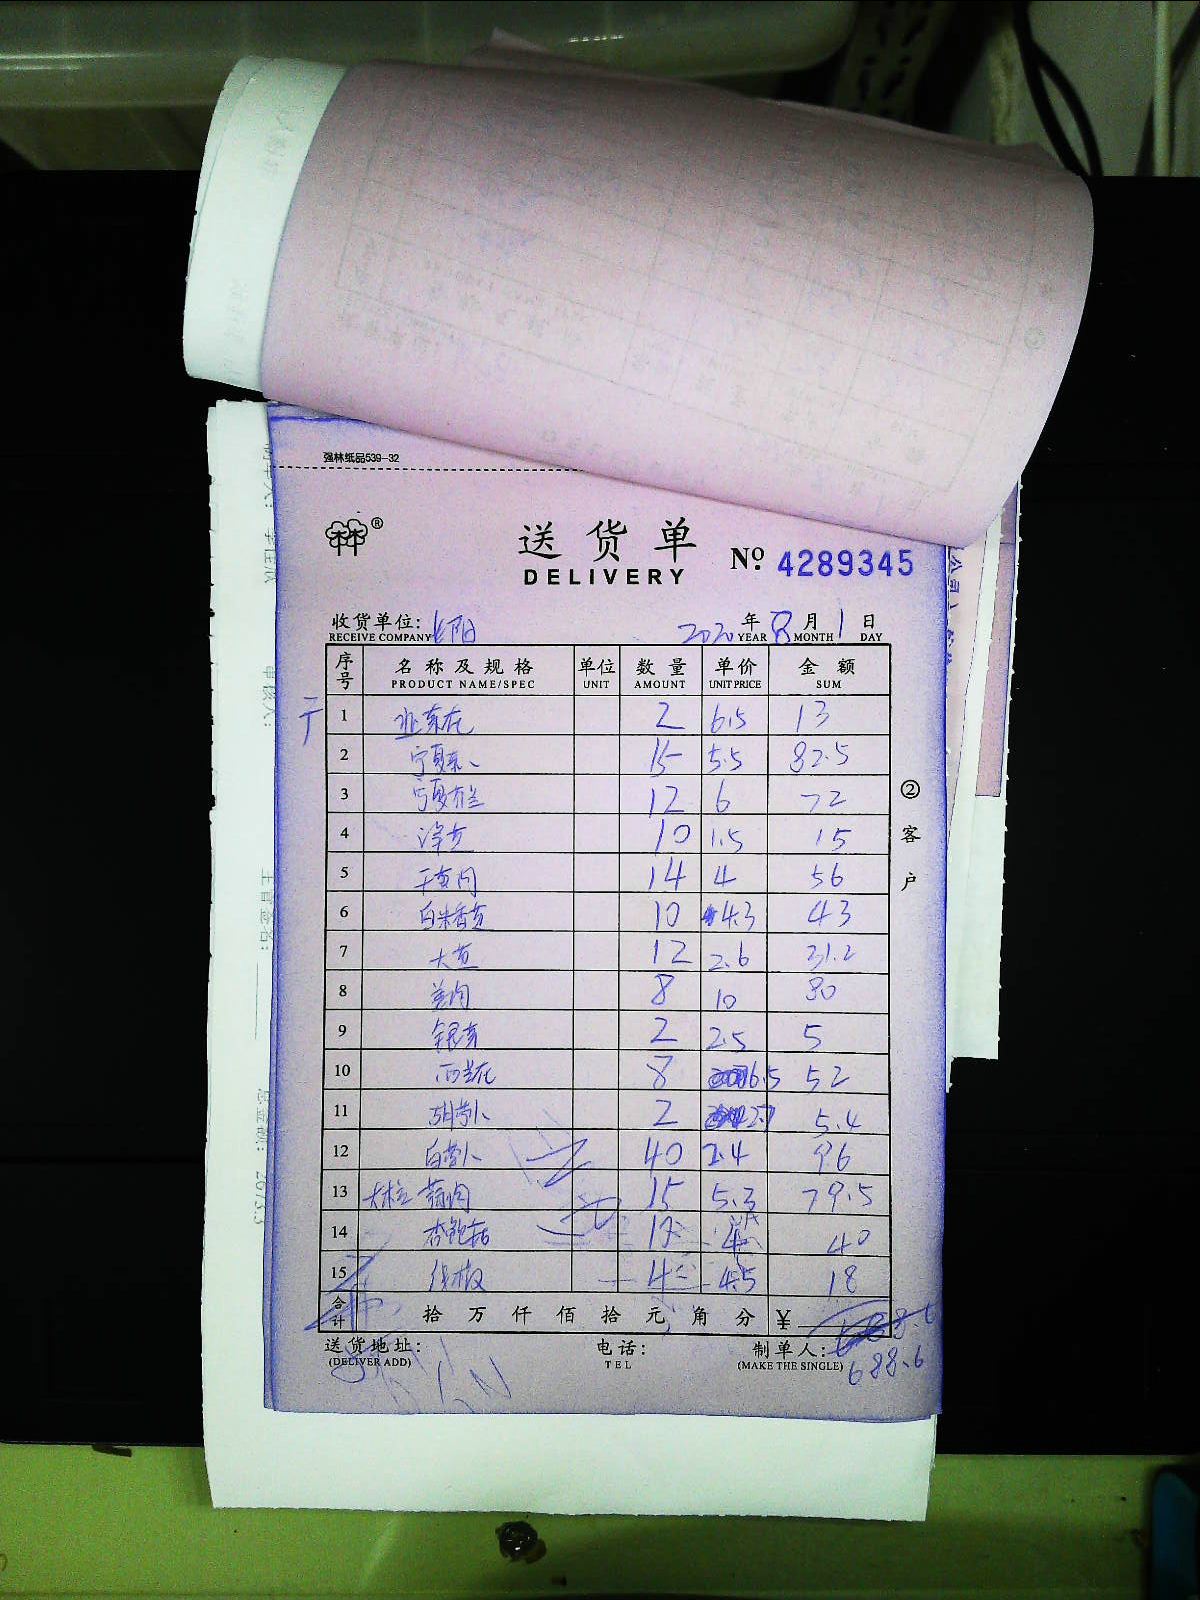 强林纸品539-32
林®
送货单
DELIVERY
Nº 4289345
收货单位:
RECEIVE COMPANY
2020 年 8 月 1 日
YEAR MONTH DAY
序号 名称及规格 单位 数量 单价 金额
PRODUCT NAME/SPEC UNIT AMOUNT UNIT PRICE SUM
1 2 6.5 13
2 宁夏菜心 15 5.5 82.5
3 宁夏芥兰 12 6 72
4 10 1.5 15
5 14 4 56
6 10 4.3 43
7 大 12 2.6 31.2
8 姜肉 8 10 80
9 银芽 2 2.5 5
10 西兰花 8 6.5 52
11 胡萝卜 2 2.7 5.4
12 白萝卜 40 2.4 96
13 大粒蒜肉 15 5.3 79.5
14 杏鲍菇 4 40
15 线椒 4 4.5 18
合计 拾 万 仟 佰 拾 元 角 分 ¥
688.6
送货地址: 电话: 制单人:
(DELIVER ADD) TEL (MAKE THE SINGLE)
②客户